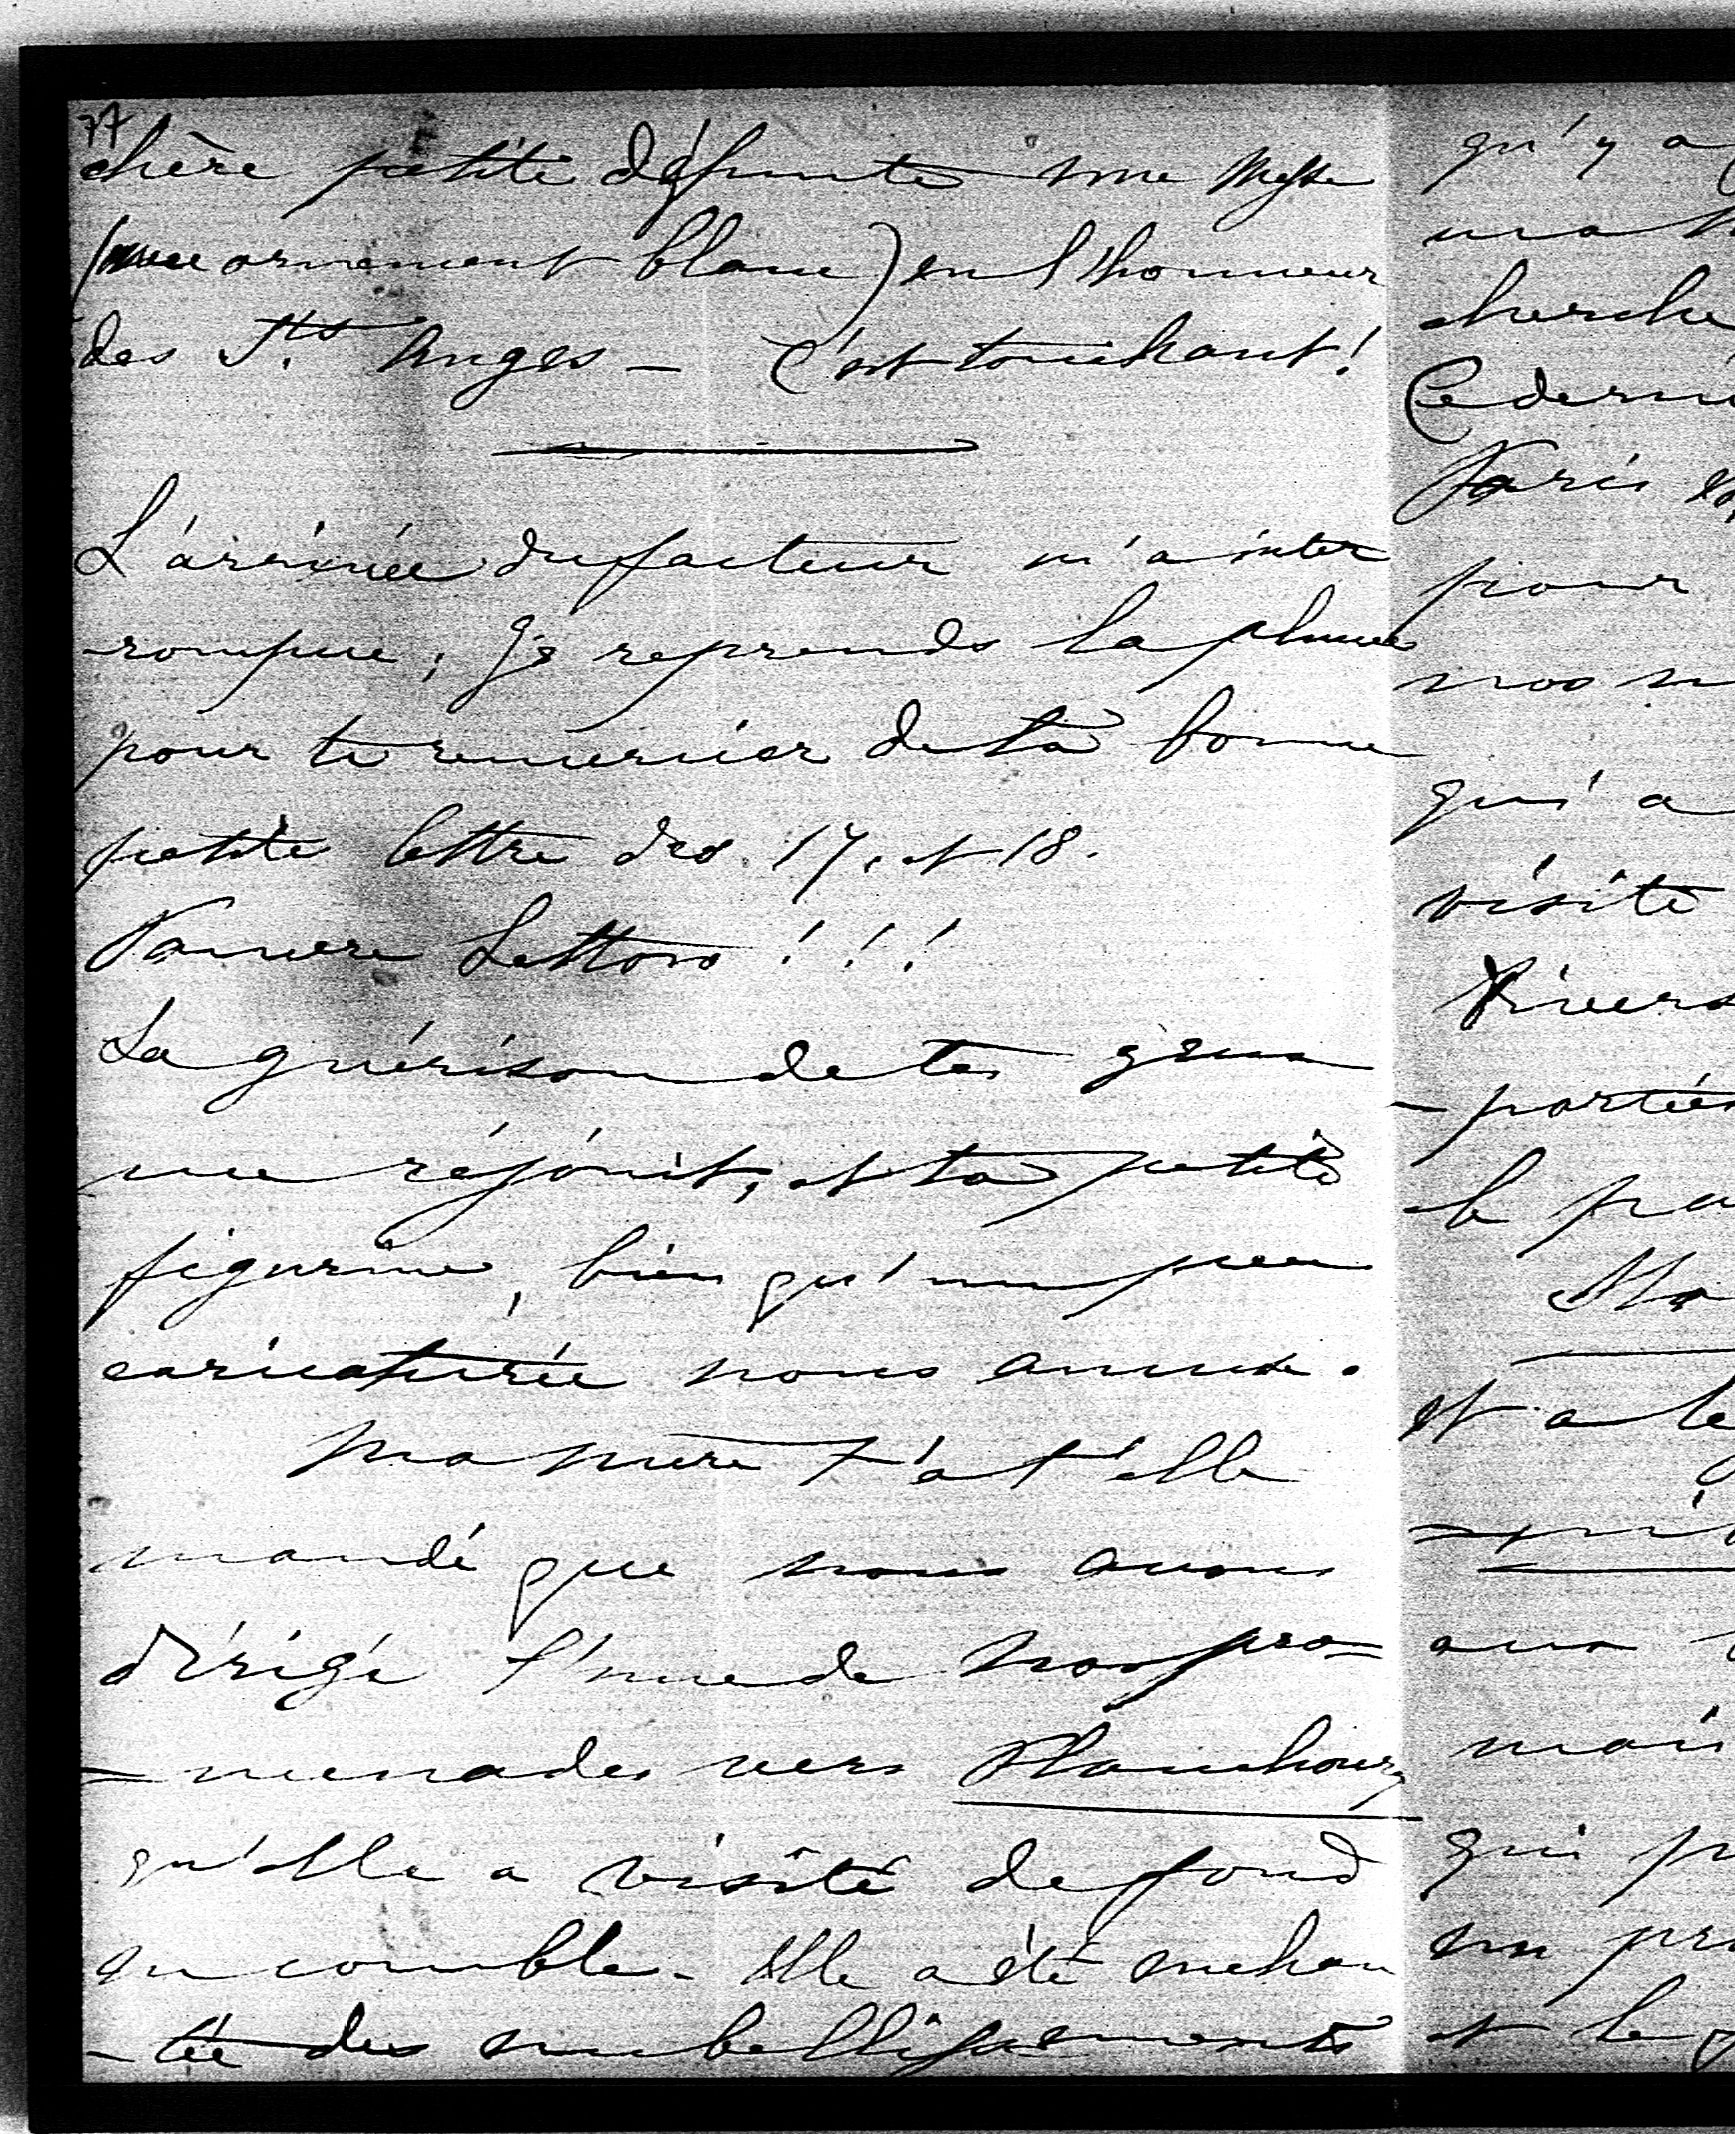 77
chère petite défunte une Messe
(avec ornement blanc) en l'honneur
des Sts Anges — C'est touchant!
L'arrivée du facteur m'a inter
-rompue; Je reprends la plume
pour te remercier de ta bonne
petite lettre des 17, et 18.
Pauvre Lettow!!!
La guérison de tes
me réjouit, et ta petite
figurine, bien qu'un peu
caricaturée nous amuse.
Ma mère t'a t'elle
mandé que nous avons
dirigé l'une de nos pro-
-menades vers Planchoury
qu'elle a visité de fond
en comble. Elle a été enchan
-tée des embellissements
qu'y a
cherche
Ce derni
Paris
pour
nos
qui a
visite
Rivera
-portées
le pa
Ma
et a le
aux
mais
qui p
un pr
et le